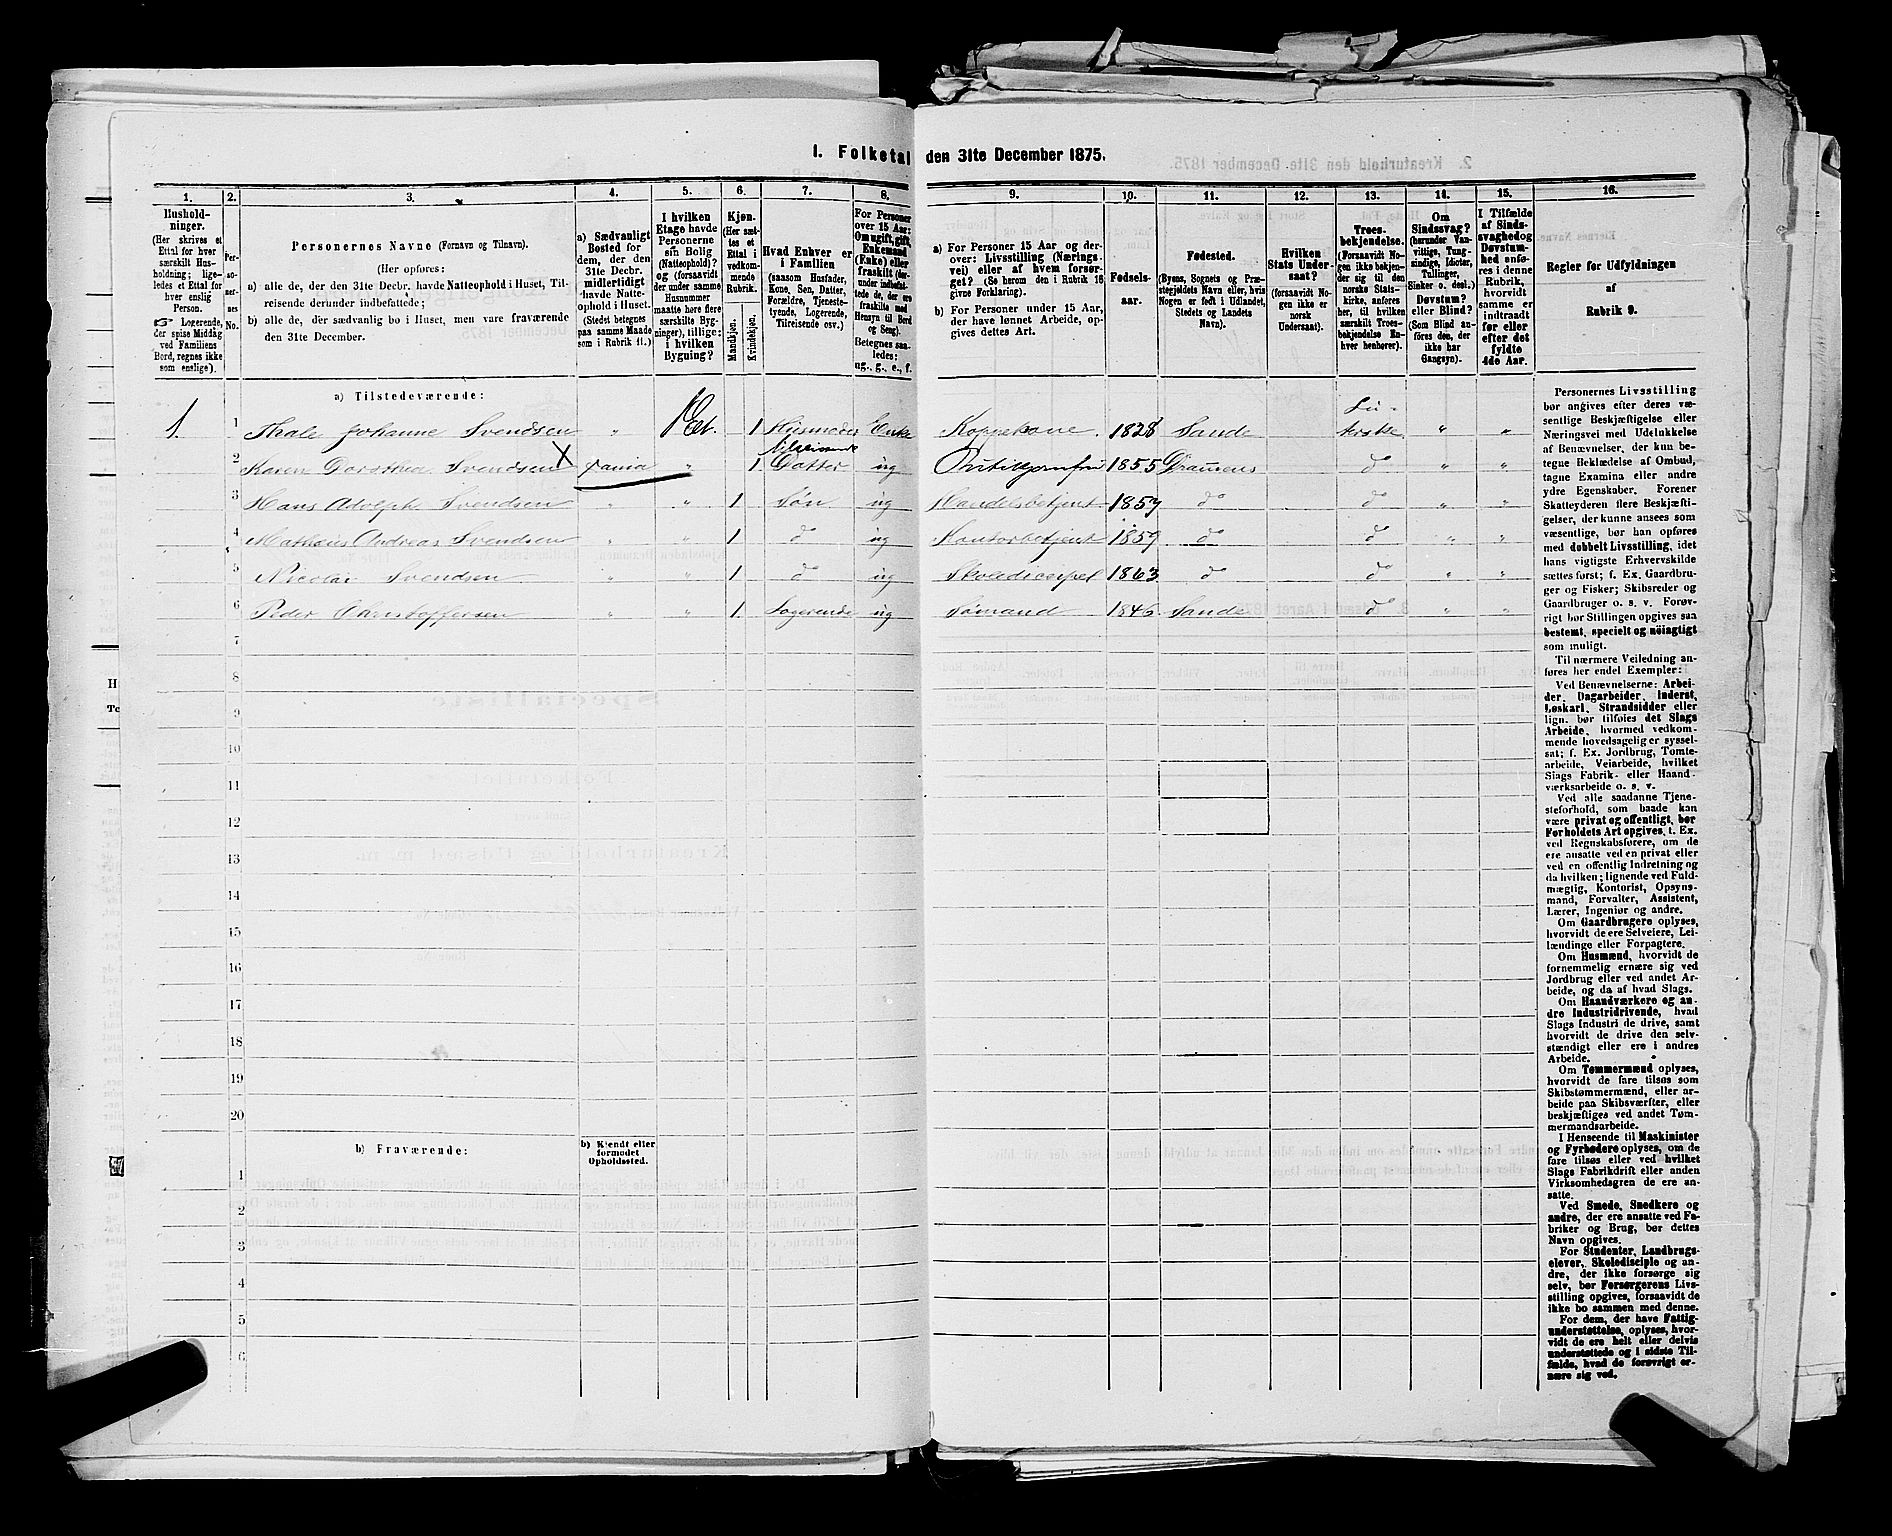 1. Folketal den 31te December 1875.
1. 2. 3. 4. 5. 6. 7. 8. 9. 10. 11. 12. 13. 14. 15. 16.
Hushold-
ninger.
(Her skrives et
Ettal for hver
særskilt Hus-
holdning; lige-
ledes et Ettal for
hver enslig
Person.
☞ Logerende,
der spise Middag
ved Familiens
Bord, regnes ikke
som enslige).
Per-
so-
ner-
nes
No.
Personernes Navne (Fornavn og Tilnavn).
(Her opføres:
a) alle de, der den 31te Decbr. havde Natteophold i Huset, Til-
reisende derunder indbefattede;
b) alle de, der sædvanlig bo i Huset, men vare fraværende
den 31te December.
a) Sædvanligt
Bosted for
dem, der den
31te Decbr.
midlertidigt
havde Natte-
ophold i Huset.
(Stedet betegnes
paa samme Maade
som i Rubrik 11.)
I hvilken
Etage havde
Personerne
sin Bolig
(Natteophold)?
og (forsaavidt
der under samme
Husnummer
maatte høre flere
særskilte Byg-
ninger), tillige:
i hvilken
Bygning?
Kjøn.
(Her sæt-
tes et
Ettal i
vedkom-
mende
Rubrik.
Mandkjøn.
Kvindekjøn.
Hvad Enhver er
i Familien
(saasom Husfader,
Kone, Søn, Datter,
Forældre, Tjeneste-
tyende, Logerende,
Tilreisende osv.)
For Personer
over 15 Aar:
Om ugift, gift,
Enkemand
(Enke) eller
fraskilt (der-
under indbefat-
tede de, der ere
fraskilte med
Hensyn til Bord
og Seng).
Betegnes saa-
ledes:
ug., g., e., f.
a) For Personer 15 Aar og der-
over: Livsstilling (Nærings-
vei) eller af hvem forsør-
get? (Se herom den i Rubrik 16
givne Forklaring).
b) For Personer under 15 Aar,
der have lønnet Arbeide, op-
gives dettes Art.
Fødsels-
aar.
Fødested.
(Byens, Sognets og Præ-
stegjeldets Navn eller, hvis
Nogen er født i Udlandet,
Stedets og Landets
Navn).
Hvilken
Stats Under-
saat?
(forsaavidt No-
gen ikke er
norsk
Undersaat).
Troes-
bekjendelse.
(Forsaavidt No-
gen ikke bekjen-
der sig til den
norske Stats-
kirke, anføres
her, til hvilken
særskilt Troes-
bekjendelse En-
hver henhører).
Om
Sindssvag?
(herunder Van-
vittige, Tung-
sindige, Idioter,
Tullinger,
Sinker o. desl.)
Døvstum?
eller Blind?
(Som Blind an-
føres den, der
ikke har
Gangsyn).
I Tilfælde
af Sinds-
svaghed og
Døvstum-
hed anfø-
res i denne
Rubrik,
hvorvidt
samme er
indtraadt
før eller
efter det
fyldte
4de Aar.
Regler for Udfyldningen
af
Rubrik 9.
a) Tilstedeværende:
1. 1 Thale Johanne Svendsen " 1 Et. 1 Husmoder Enke Koppekone. 1828 Sande Lu-
terske " "
2 Karen Dorothea Svendsen X 1 Datter ug 1855 Dramens do " "
3 Hans Adolph Svendsen " " 1 Søn ug Handelsbetjent 1857 do do " "
4 Mathæus Andreas Svendsen " " 1 do ug Kontorbetjent 1859 do do " "
5 Nicolai Svendsen " " 1 do ug Skolediscipel 1863 do do " "
6 Peder Christoffersen " " 1. Logerende ug Sømand 1846 Sande do " "
7
8
9
10
11
12
13
14
15
16
17
18
19
20
b) Fraværende:
b) Kjendt eller
formodet
Opholdssted.
1
2
3
4
5
6
Personernes Livsstilling
bør angives efter deres væ-
sentlige Beskjæftigelse eller
Næringsvei med Udelukkelse
af Benævnelser, der kun be-
tegne Beklædelse af Ombud,
tagne Examina eller andre
ydre Egenskaber. Forener
Skatteyderen flere Beskjæfti-
gelser, der kunne ansees som
væsentlige, bør han opføres
med dobbelt Livsstilling, idet
hans vigtigste Erhvervskilde
sættes først; f. Ex. Gaardbru-
ger og Fisker; Skibsreder og
Gaardbruger o. s. v. Forøv-
rigt bør Stillingen opgives saa
bestemt, specielt og nøiagtigt
som muligt.
Til nærmere Veiledning an-
føres her endel Exempler:
Ved Benævnelserne: Arbei-
der, Dagarbeider, Inderst,
Løskarl, Strandsidder eller
lign. bør tilføies det Slags
Arbeide, hvormed vedkom-
mende hovedsagelig er syssel-
sat; f. Ex. Jordbrug, Tomte-
arbeide, Veiarbeide, hvilket
Slags Fabrik- eller Haand-
værksarbeide o. s. v.
Ved alle saadanne Tjene-
steforhold, som baade kan
være privat og offentligt, bør
Forholdets Art opgives, t. Ex.
ved Regnskabsførere, om de
ere ansatte ved en privat eller
ved en offentlig Indretning og
da hvilken; lignende ved Fuld-
mægtig, Kontorist, Opsyns-
mand, Forvalter, Assistent,
Lærer, Ingeniør og andre.
Om Gaardbrugere oplyses,
hvorvidt de ere Selveiere, Lei-
lændinge eller Forpagtere.
Om Husmænd, hvorvidt de
fornemmelig ernære sig ved
Jordbrug eller ved andet Ar-
beide, og da af hvad Slags.
Om Haandværkere og an-
dre Industridrivende, hvad
Slags Industri de drive, samt
hvorvidt de drive den selv-
stændigt eller ere i andres
Arbeide.
Om Tømmermænd oplyses,
hvorvidt de fare tilsøs som
Skibstømmermænd, eller ar-
beide paa Skibsværfter, eller
beskjæftiges ved andet Tøm-
mermandsarbeide.
I Henseende til Maskinister
og Fyrbødere oplyses, om de
fare tilsøs eller ved hvilket
Slags Fabrikdrift eller anden
Virksomhedsgren de ere an-
satte.
Ved Smede, Snedkere og
andre, der ere ansatte ved Fa-
briker og Brug, bør dettes
Navn opgives.
For Studenter, Landbrugs-
elever, Skoledisciple og an-
dre, der ikke forsørge sig
selv, bør Forsørgerens Livs-
stilling opgives, forsaavidt de
ikke bo sammen med denne.
For dem, der have Fattig-
understøttelse, oplyses, hvor-
vidt de ere helt eller delvis
understøttede og i sidste Til-
fælde, hvad de forøvrigt er-
nære sig ved.